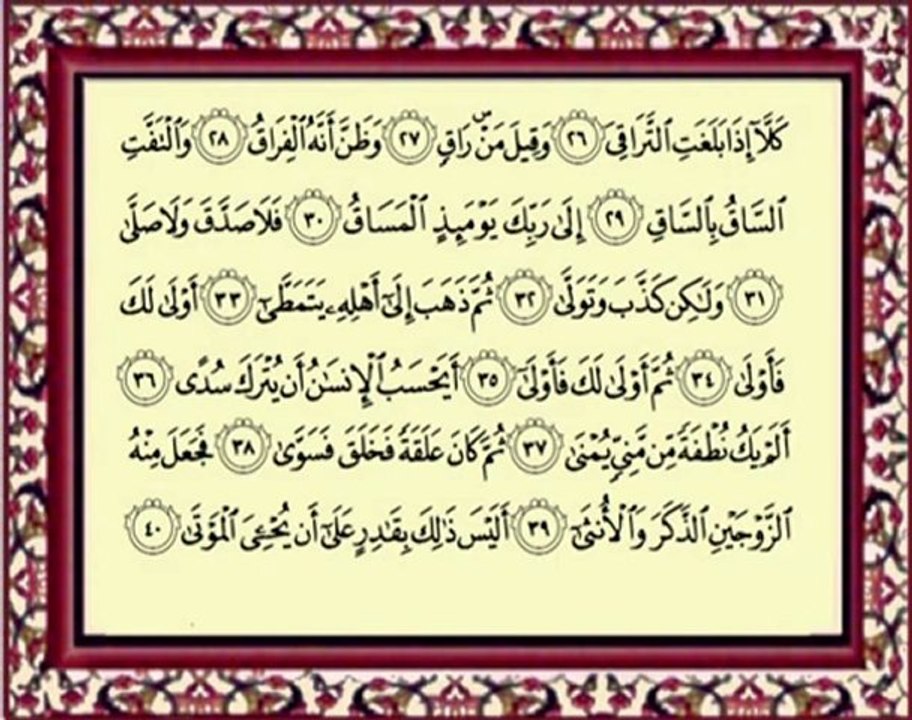 كَلَّآ إِذَا بَلَغَتِ ٱلتَّرَاقِىَ ٢٦ وَقِيلَ مَنْۜ رَاقٍ ٢٧ وَظَنَّ أَنَّهُ ٱلْفِرَاقُ ٢٨ وَٱلْتَفَّتِ
ٱلسَّاقُ بِٱلسَّاقِ ٢٩ إِلَىٰ رَبِّكَ يَوْمَئِذٍ ٱلْمَسَاقُ ٣٠ فَلَا صَدَّقَ وَلَا صَلَّىٰ
٣١ وَلَـٰكِن كَذَّبَ وَتَوَلَّىٰ ٣٢ ثُمَّ ذَهَبَ إِلَىٰٓ أَهْلِهِۦ يَتَمَطَّىٰٓ ٣٣ أَوْلَىٰ لَكَ
فَأَوْلَىٰ ٣٤ ثُمَّ أَوْلَىٰ لَكَ فَأَوْلَىٰٓ ٣٥ أَيَحْسَبُ ٱلْإِنسَـٰنُ أَن يُتْرَكَ سُدًى ٣٦
أَلَمْ يَكُ نُطْفَةً مِّن مَّنِىٍّ يُمْنَىٰ ٣٧ ثُمَّ كَانَ عَلَقَةً فَخَلَقَ فَسَوَّىٰ ٣٨ فَجَعَلَ مِنْهُ
ٱلزَّوْجَيْنِ ٱلذَّكَرَ وَٱلْأُنثَىٰٓ ٣٩ أَلَيْسَ ذَٰلِكَ بِقَـٰدِرٍ عَلَىٰٓ أَن يُحْـِۧىَ ٱلْمَوْتَىٰ ٤٠